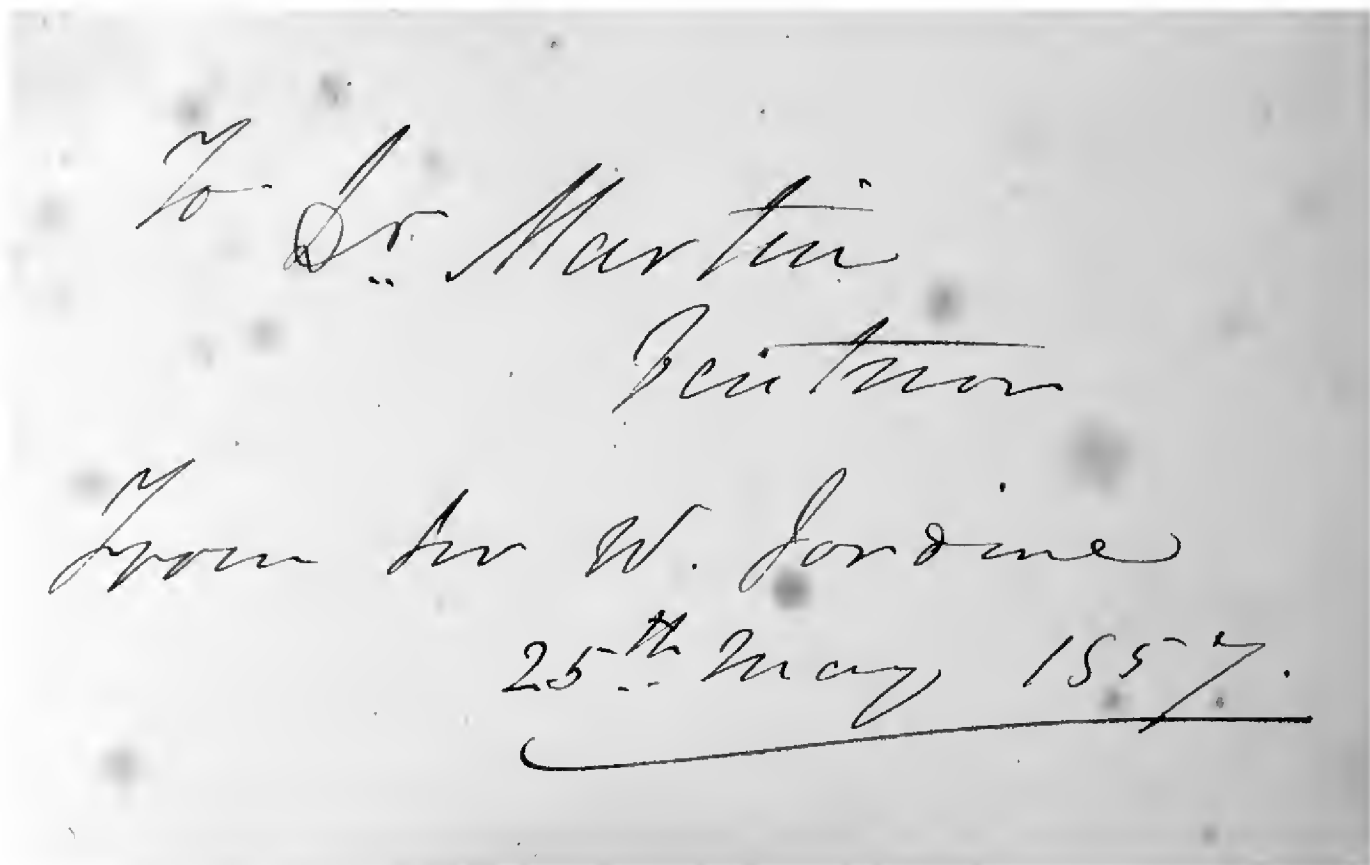 To Dr. Martin
Ventnor
From Sir W. Jardine
25th May 1857.